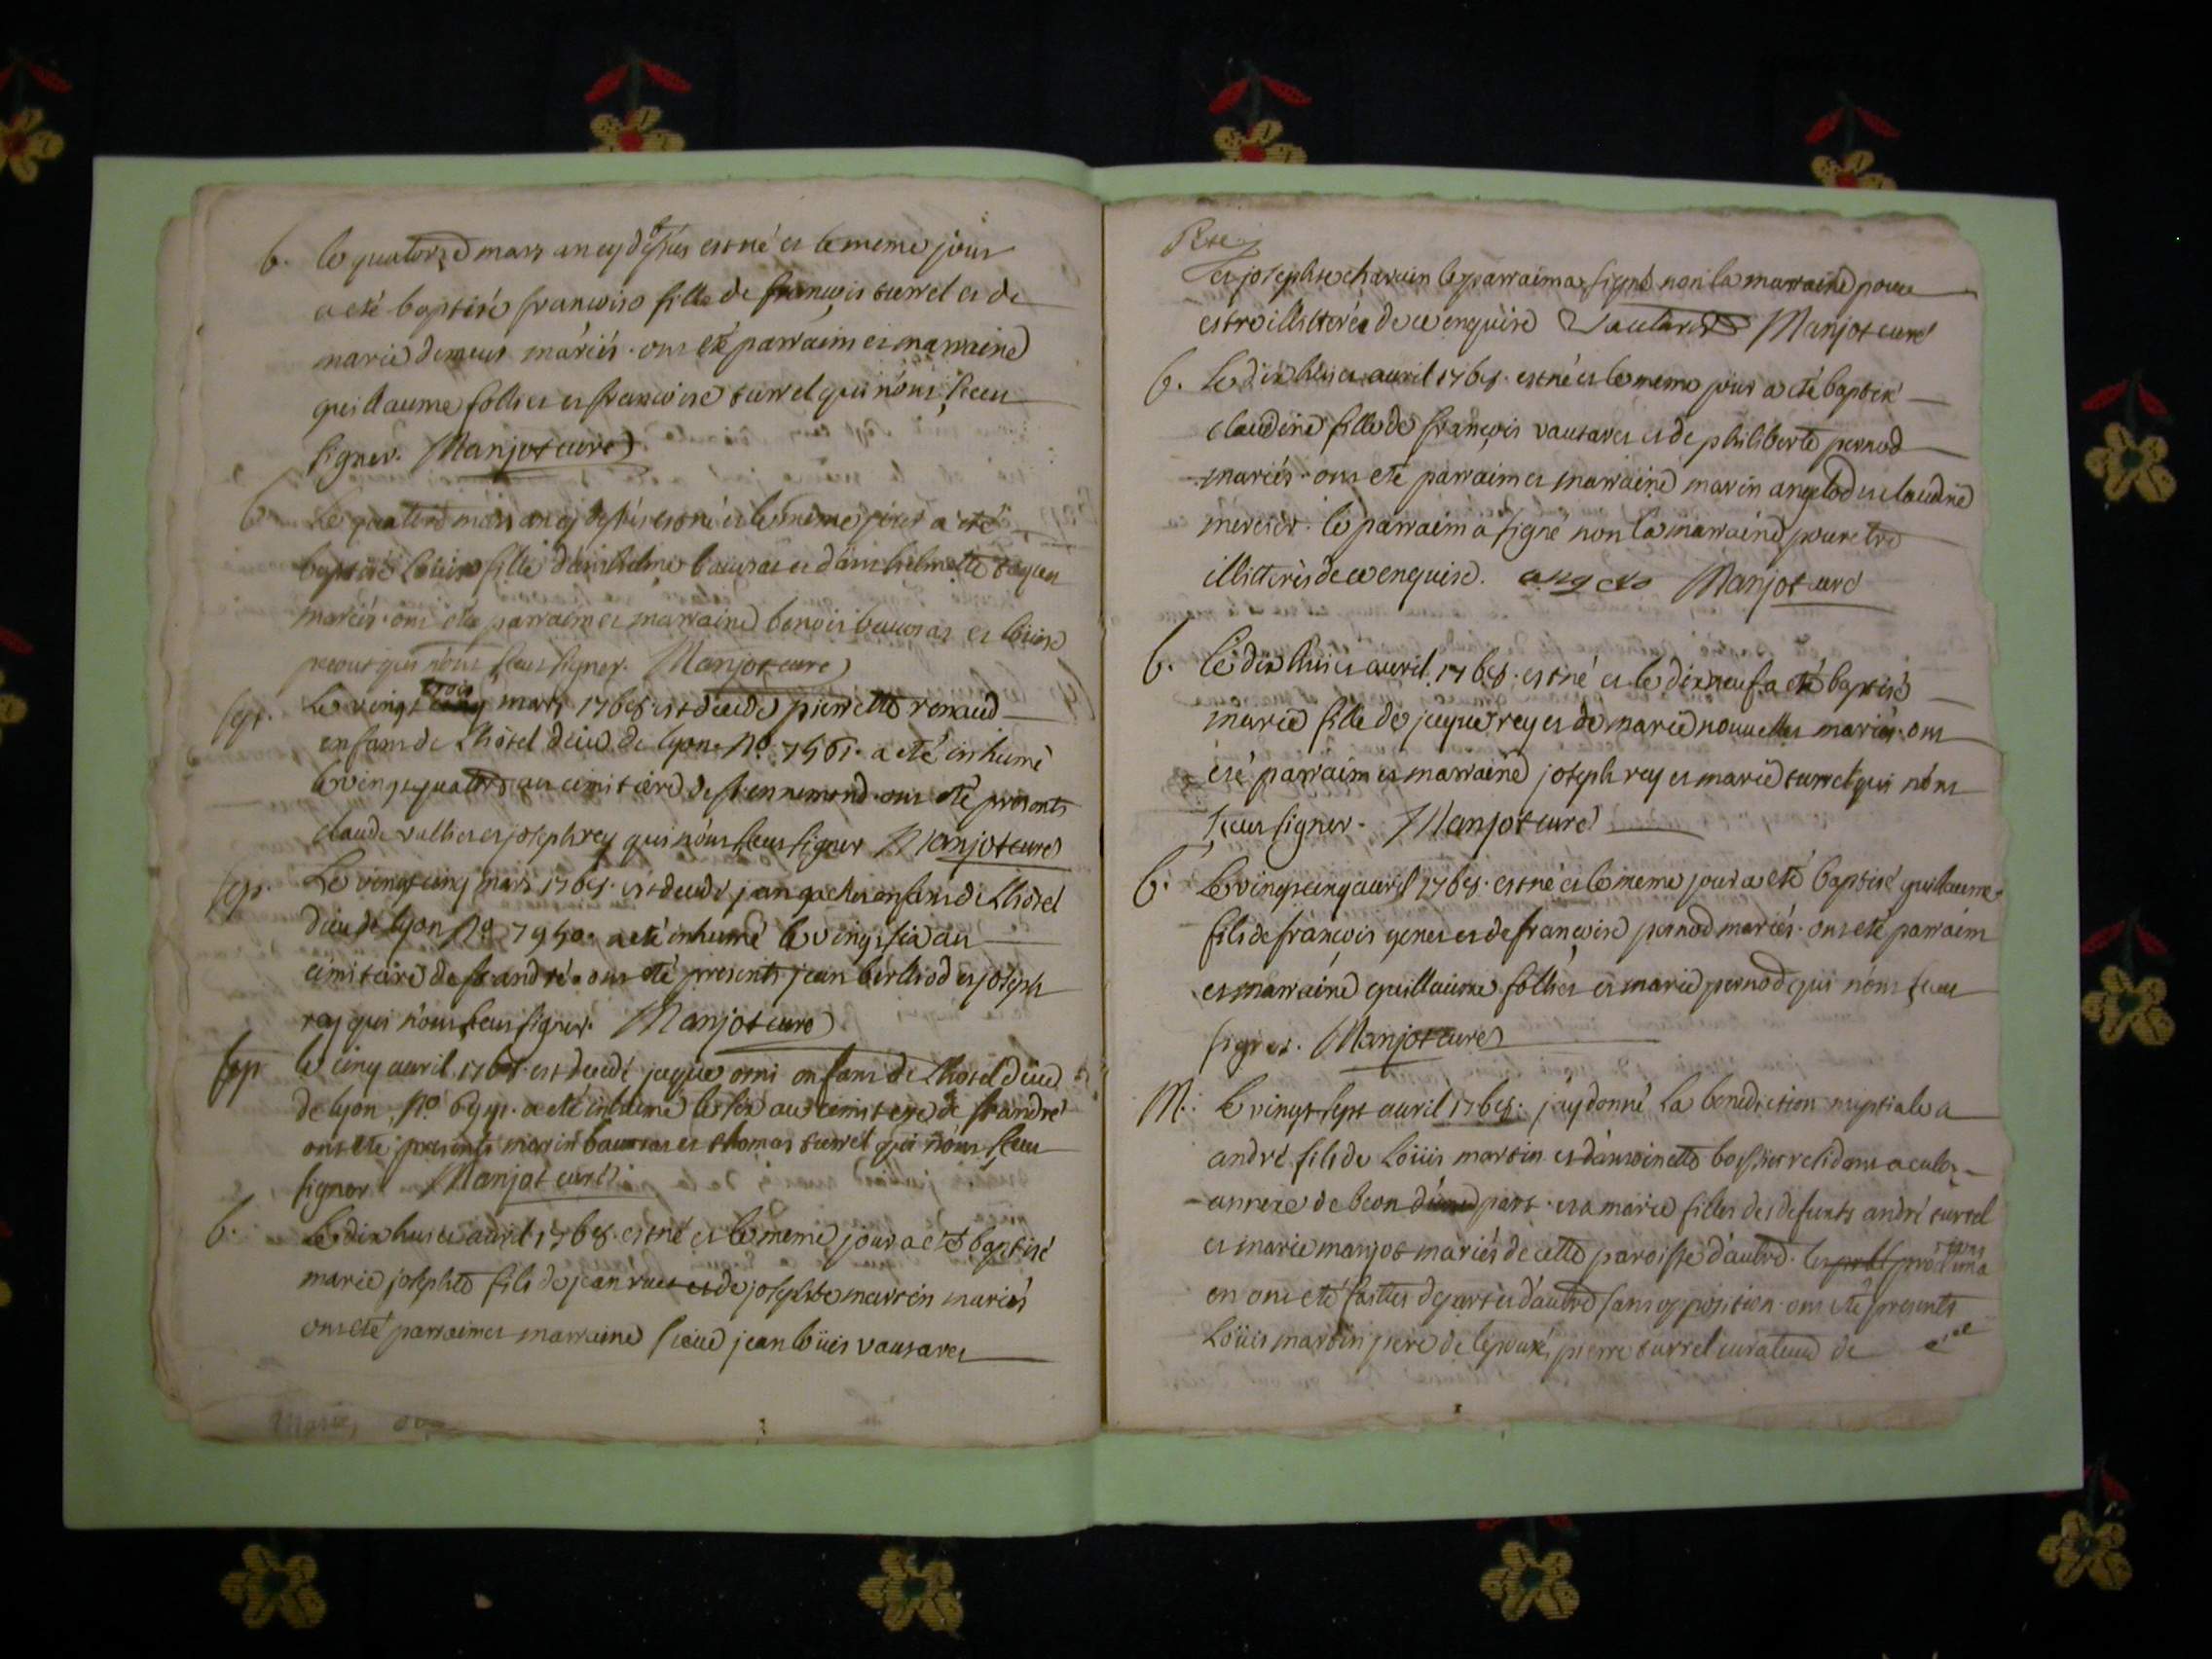 b. le quatorze mars an cydessus est né et le meme jour
a eté baptisé francoise fille de francois surrel et de
marie mariés. ont eté parraim et marraine
guillaume follier et francoise surrel qui n'ont sceu
signer. Manjot curé
b. Le quatorze mars an cy dessus est né et le meme jour a eté
baptisé Loüise fille d'anthelme et d'anthelmette
mariés. ont eté parraim et marraine benoit et loüise
qui n'ont sceu signer. Manjot curé
sep. Le vingt trois mars 1768. est decedé pierrette renaud
enfant de Lhotel dieu de lyon No. a eté inhumé
le vingt quatre au cimitiere de st ennemond. ont eté presents
claude vulliet et joseph rey qui n'ont sceu signer Manjot curé
sep. Le vingt cinq mars 1768. est decedé enfant de Lhotel
dieu de lyon No. 7950. a eté inhumé le vingt six au
cimitiere de st andré. ont eté presents jean berthod et joseph
rey qui n'ont sceu signer. Manjot curé
sep le cinq avril 1768. est decedé jaque orni enfant de Lhotel dieu
de lyon, No. a eté inhumé le six au cimitiere de st andré
ont eté presents marin et thomas surrel qui n'ont sceu
signer Manjot curé
b. Le dix huit avril 1768. est né et le meme jour a eté baptisé
marie josephte fils de jean et de josephte martin mariés
ont eté parraim et marraine sieur jean loüis vautaret
Rte
et josephte charvin le parraim a signé non la marraine pour
estre illitterée de ce enquise Vautaret Manjot curé
b. Le dix huit avril 1768. est né et le meme jour a eté baptisé
claudine fille de françois vautaret et de philiberte pernod
mariés. ont eté parraim et marraine marin angelod et claudine
mercier. le parraim a signé non la marraine pour etre
illitterés de ce enquise. angelo Manjot curé
b. Le dix huit avril 1768. est né et le dix neuf a eté baptisé
marie fille de jaque rey et de marie nouvellet mariés. ont
eté parraim et marraine joseph rey et marie surrel qui n'ont
sceu signer. Manjot curé
b. Le vingt cinq avril 1768. est né et le meme jour a eté baptisé guillaume
fils de françois genet et de françoise pernod mariés. ont eté parraim
et marraine guillaume follier et marie pernod qui n'ont sceu
signer. Manjot curé
M. Le vingt sept avril 1768. j'ay donné La benediction nuptiale a
andré fils de Loüis martin et d'antoinette residant a culoz
annexe de beon d'une part. et a marie fille des defunts andré surrel
et marie manjot mariés de cette paroisse d'autre. les proclama
tions
en ont eté faittes de part et d'autre sans opposition. ont eté presents
Loüis martin pere de l'epoux, pierre surrel curateur de